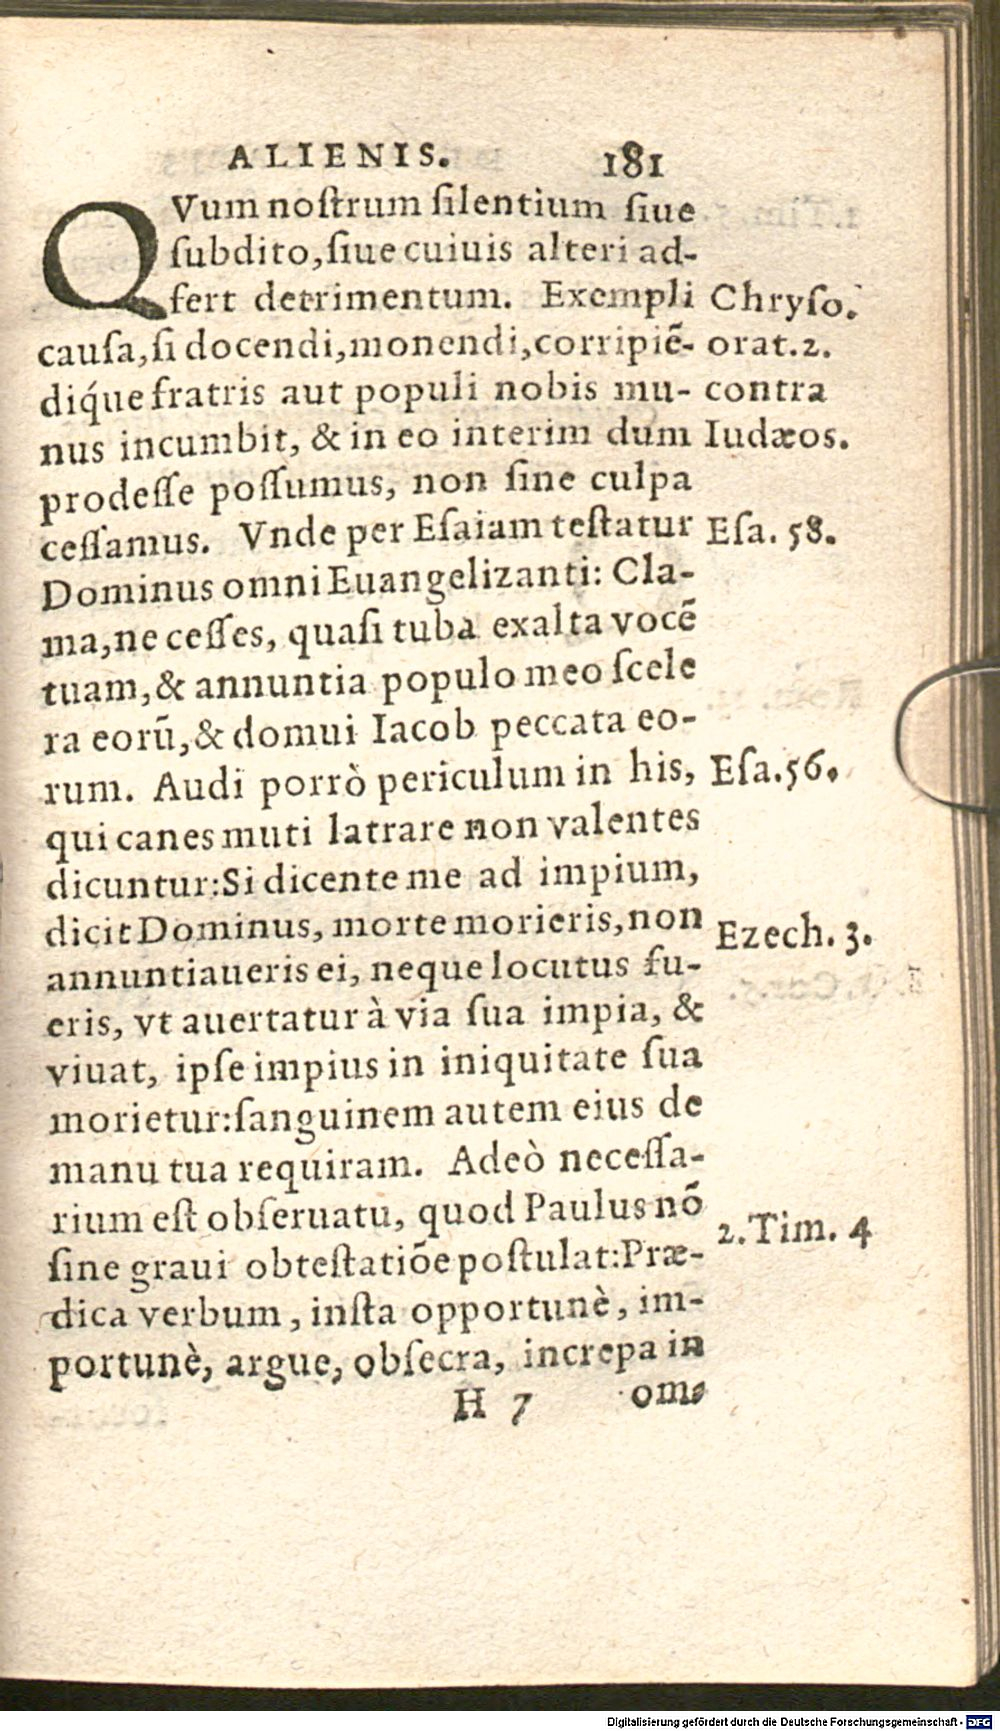 ALIENIS. 181
QVum noſtrum ſilentium ſiue
ſubdito, ſiue cuiuis alteri ad-
fert detrimentum. Exempli
Chryſo.
cauſa, ſi docendi, monendi, corripiē-
orat. 2.
diq́ue fratris aut populi nobis mu-
contra
nus incumbit, & in eo interim dum
Iudæos.
prodeſſe poſſumus, non ſine culpa
ceſſamus. Vnde per Eſaiam teſtatur
Eſa. 58.
Dominus omni Euangelizanti: Cla-
ma, ne ceſſes, quaſi tuba exalta vocē
tuam, & annuntia populo meo ſcele
ra eorū, & domui Iacob peccata eo-
rum. Audi porrò periculum in his,
Eſa. 56.
qui canes muti latrare non valentes
dicuntur: Si dicente me ad impium,
dicit Dominus, morte morieris, non
Ezech. 3.
annuntiaueris ei, neque locutus fu-
eris, vt auertatur à via ſua impia, &
viuat, ipſe impius in iniquitate ſua
morietur: ſanguinem autem eius de
manu tua requiram. Adeò neceſſa-
rium eſt obſeruatu, quod Paulus nō
2. Tim. 4
ſine graui obteſtatiōe poſtulat: Præ-
dica verbum, inſta opportunè, im-
portunè, argue, obſecra, increpa in
H 7 om-
Digitalisierung gefördert durch die Deutsche Forschungsgemeinschaft - DFG